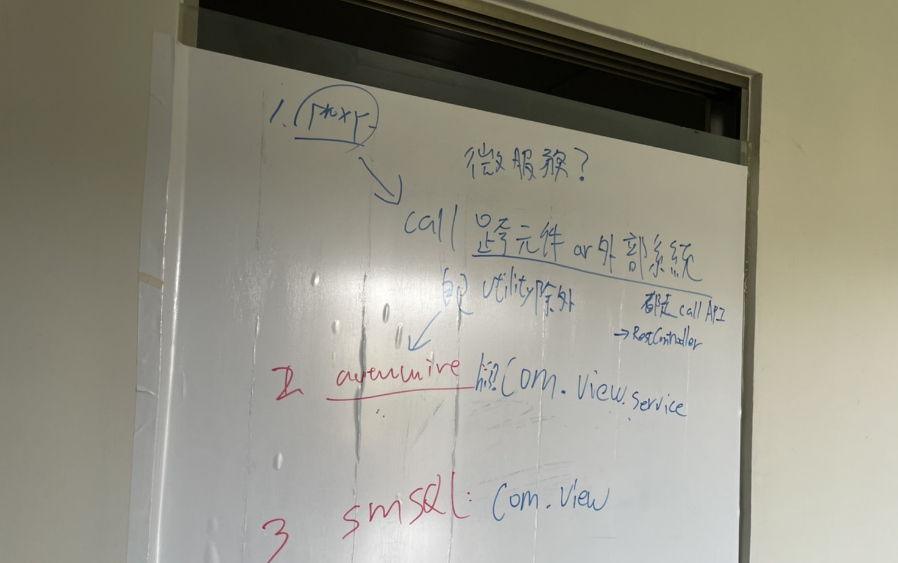 1. Proxy
微服務?
call 跨元件 or 外部系統
utility除外
都是 call API
→RestController
2 autowire com.view.service
3 smSQL: com.view